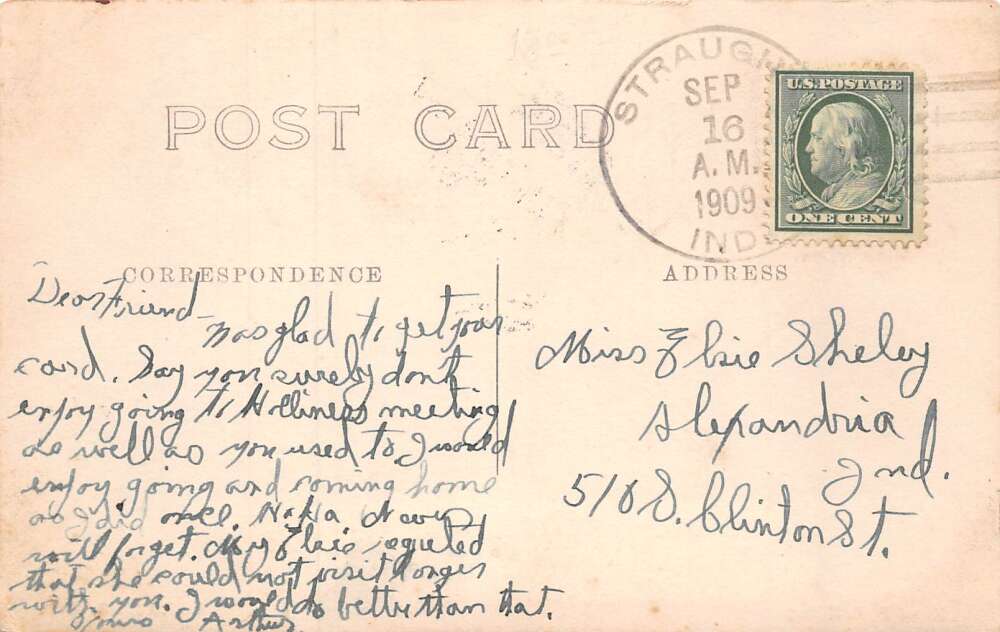 POST CARD
STRAUGHN
SEP
16
A.M.
1909
IND.
U.S. POSTAGE
ONE CENT
CORRESPONDENCE
ADDRESS
Dear Friend
was glad to get your
card. Say you surely don't
enjoy going to Holliness meeting
as well as you used to I would
enjoy going and coming home
as I did once. Ha Ha. Never
will forget. My Elsie
that she could not visit longer
with you. I would do better than that.
Yours Arthur
Miss Elsie Sheley
Alexandria
Ind.
510 S. Clinton St.